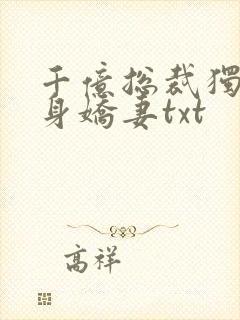 千億総裁獨
身嬌妻txt
高祥